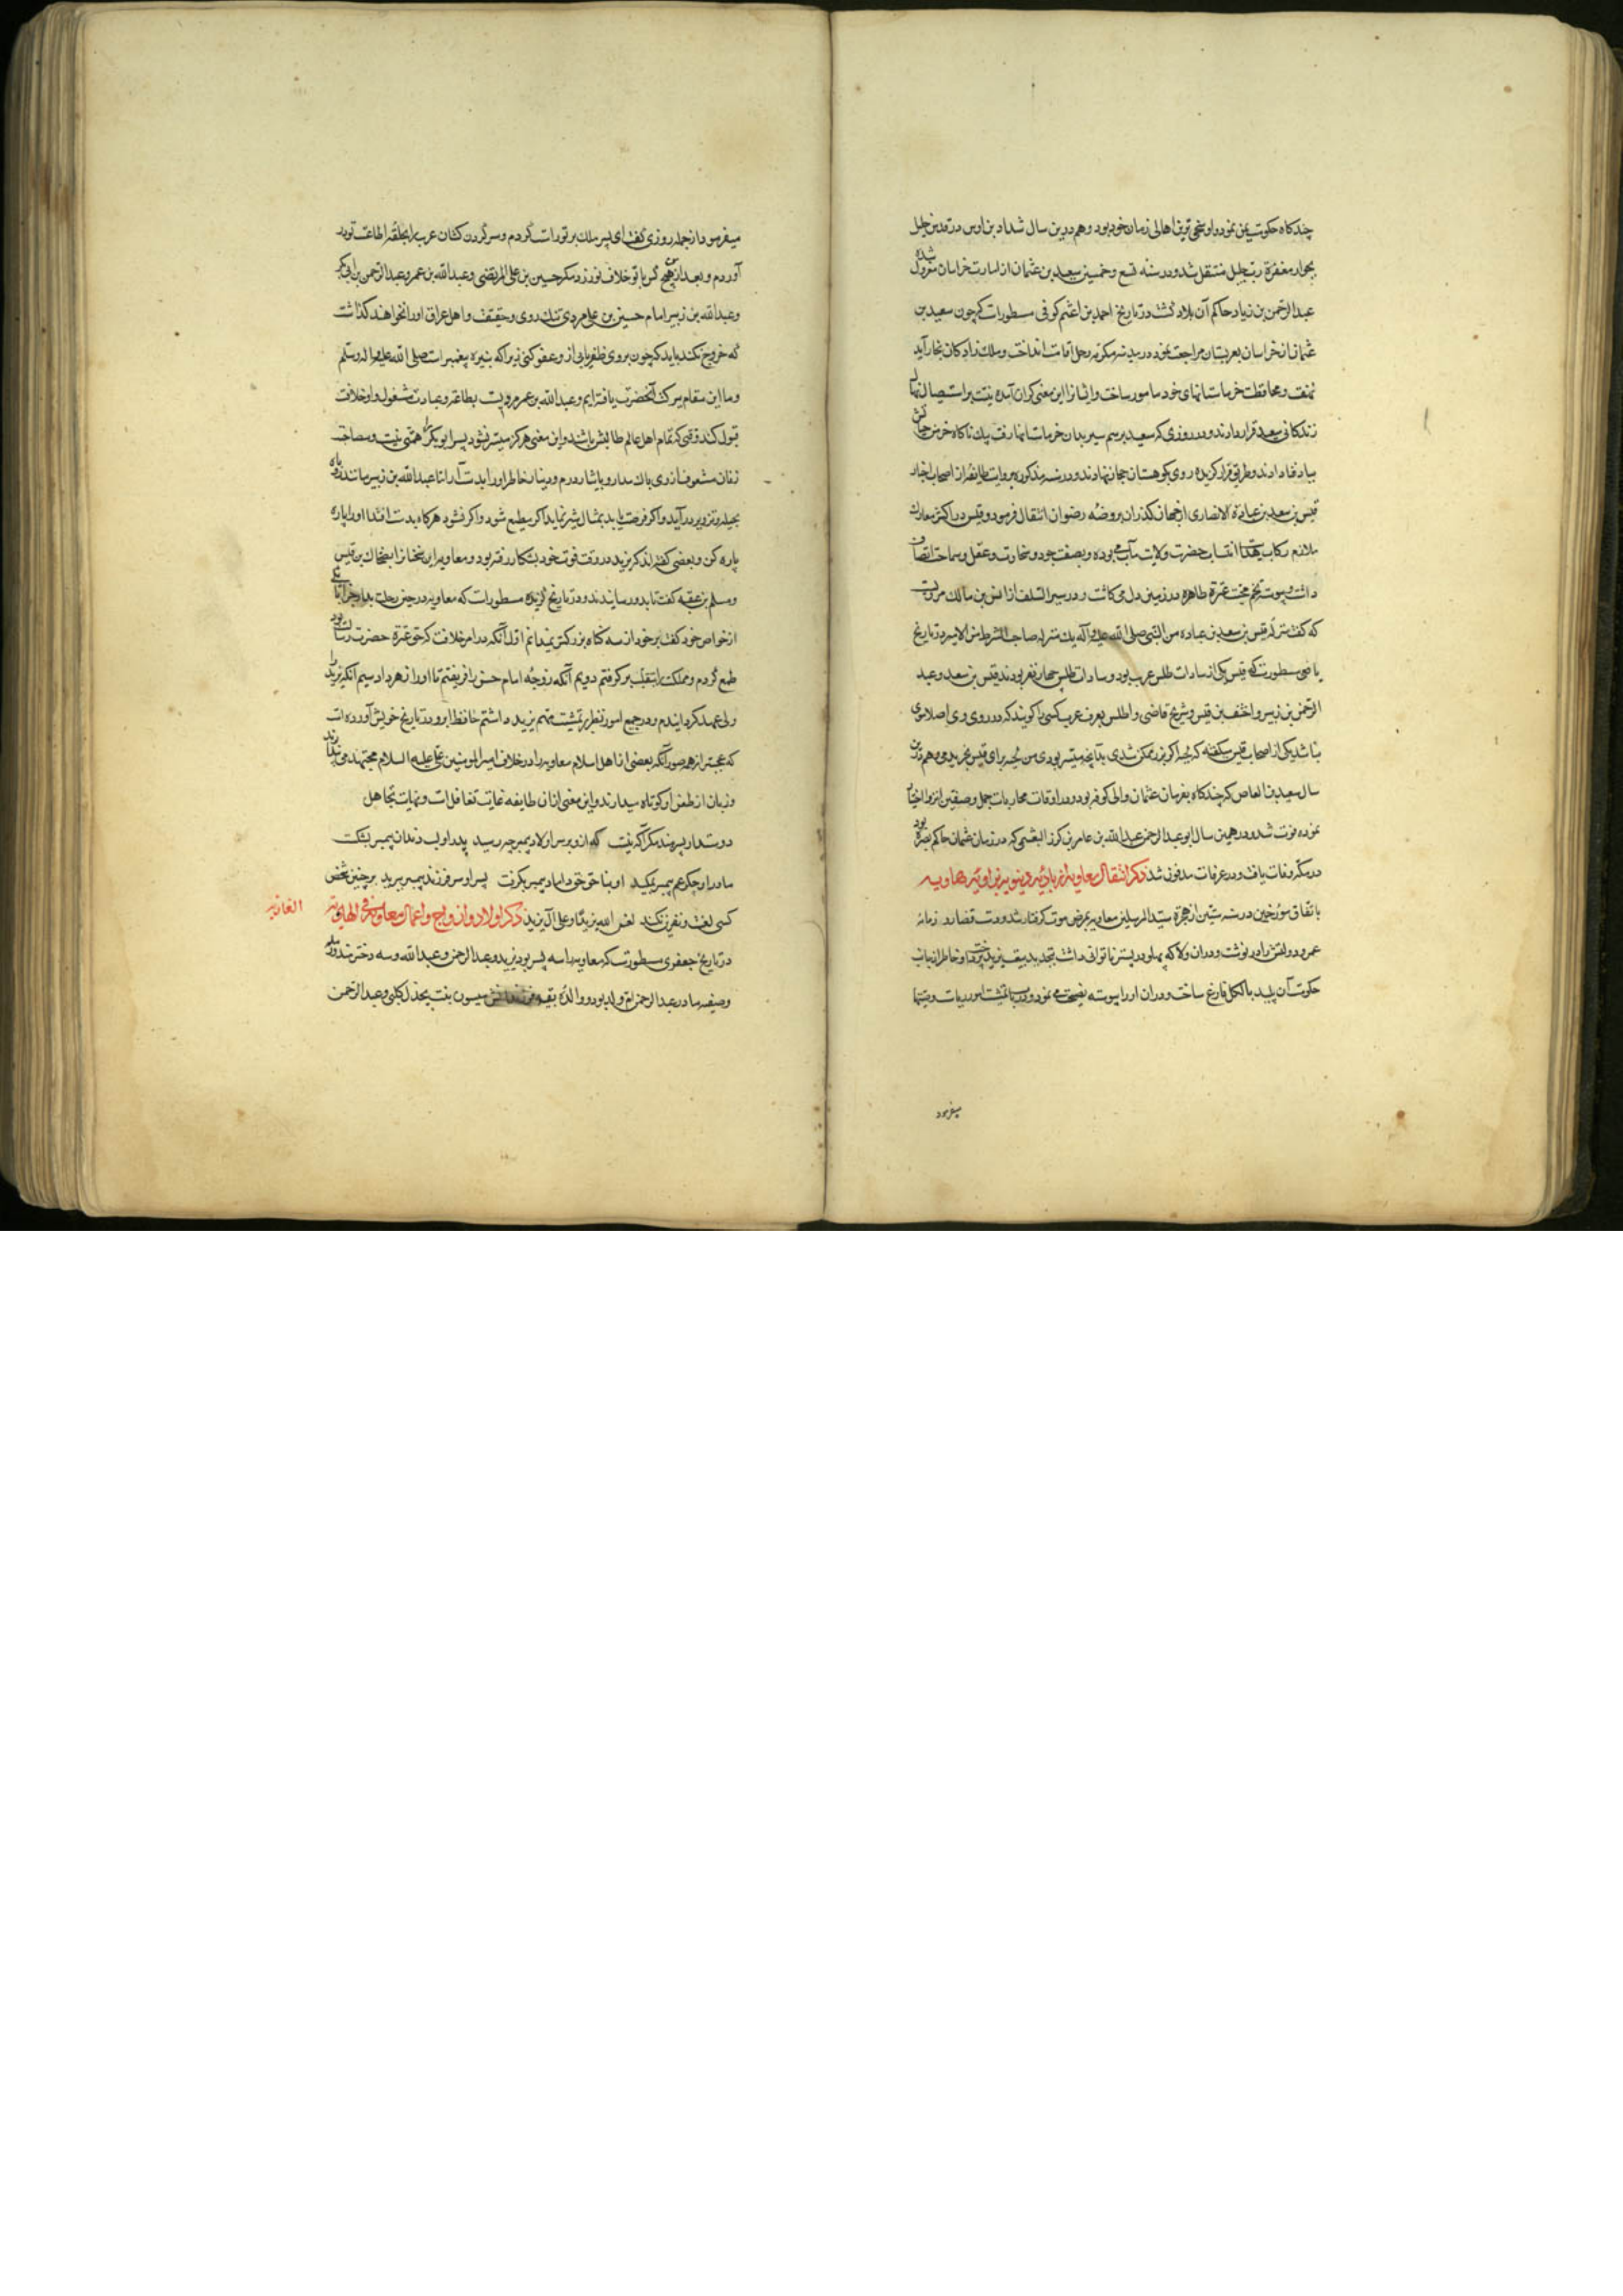 چندکاه حکومت یمن نمود و او سخی ترین اهالی زمان خود بود و هم درین سال شداد بن اوس در قدس خلیل
بجوار مغفرة رب جلیل منتقل شد و در سنه تسع و خمسین سعید بن عثمان از امارت خراسان معزول شده
عبدالرحمن بن زیاد حاکم آن بلاد کشت و در تاریخ احمد بن اعثم کوفی مسطورات که چون سعید بن
عثمان از خراسان بعربستان مراجعت نمود در مدینه مکرمه رحل اقامت انداخت و ملک زادکان بخارا
و محافظت خرماستانهای خود مامور ساخت و ایشانرا این معنی کران آمده نیت بر استیصال نهال
زندکانی سعید قرار دادند و در روزی که سعید برسم سیر بدان خرماستانها رفت ناکاه خرمن حیاتش
بباد فنا دادند و طریق فرار کزیده روی بکوهستان حجاز نهادند و در سنه مذکوره بروایت طایفه از اصحاب اخبار
قیس بن سعد بن عباده الانصاری از جهان کذران بروضه رضوان انتقال فرمود و قیس در اکثر معارک
ملازم رکاب انتساب حضرت ولایت مآب می بوده و بصفت جود و سخاوت و عقل و سماحت اتصاف
داشت و پیوسته تخم محبت عترة طاهره در زمین دل می کاشت و در سیر السلف از انس بن مالک مرویست
که کفت منزله قیس بن سعد بن عباده من النبی صلی الله علیه وآله بمنزله صاحب الشرط من الامیر و در تاریخ
یافعی مسطورست که قیس یکی از سادات طلس عرب بود و سادات طلس چهار نفر بودند قیس بن سعد و عبد
الرحمن بن زبیر و احنف بن قیس و شریح قاضی و اطلس بعرف عرب کسی را کویند که در روی وی اصلا موی
نباشد یکی از اصحاب قیس میکفته که لحیه اکر بزر ممکن شدی بدانچه میسر بودی من لحیه برای قیس بخریدمی و هم درین
سال سعید بن العاص که چندکاه بفرمان عثمان والی کوفه بود و در اوقات محاربات جمل و صفین انزوا اختیار
نموده فوت شد و در همین سال ابو عبدالرحمن عبدالله بن عامر بن کریز العبشمی که در زمان عثمان حاکم بصره بود
در مکه وفات یافت و در عرفات مدفون شد ذکر انتقال معاویه از بادیه دنیویه بزاویه هاویه
باتفاق مورخین در سنه ستین از هجرة سید المرسلین معاویه بمرض موت کرفتار شد و دست قضا زمانه
عمر و دولتش را در نوشت و دران ولا که پهلو در بستر ناتوانی داشت بتجدید بیعت یزید پرداخت و خاطر از جانب
حکومت آن پلید بالکل فارغ ساخت و دران اورا پیوسته نصیحت می نمود و در باب تمشیت امور ریاست وصیتها
میفرمود
میفرمود از جمله روزی کفت ای پسر ملک بر تو راست کردم و سر کردن کشان عرب را بحلقه اطاعت تو در
آوردم و بعد از من هیچ کس با تو خلاف نورزد مکر حسین بن علی المرتضی و عبدالله بن عمر و عبدالرحمن بن ابی بکر
و عبدالله بن زبیر امام حسین بن علی مردی تنک روی و خفیف و اهل عراق اورا نخواهند کذاشت
که خروج نکند باید که چون بر وی ظفر یابی ازو عفو کنی زیرا که نبیره پیغمبر است صلی الله علیه واله وسلم
و ما این مقام ببرکت آنحضرت یافته ایم و عبدالله بن عمر مردیست بطاعة و عبادت مشغول و او خلافت
قبول نکند وقتی که تمام اهل عالم طالبش باشند و این معنی هرکز میسر نشود پسر ابوبکر را همتی نیست و بمصاحبت
زنان مشعوفست از وی باک مدار و بایثار درم و دینار خاطر اورا بدست آر اما عبدالله بن زبیر مانند روباه
بحیله و تزویر در آید و اکر فرصت یابد بمثال شیر نماید اکر مطیع شود و اکر نشود هرکاه بدست افتد اورا پاره
پاره کن و بعضی کفته اند که یزید در وقت فوت پدر بشکار رفته بود و معاویه این سخنانرا بضحاک بن قیس
و مسلم بن عقبه کفت تا بدو رسانیدند و در تاریخ کزیده مسطورات که معاویه در حین رحلت با یکی
از خواص خود کفت بر خود از سه کناه بزرکتر نمیدانم اول آنکه در امر خلافت که حق عترة حضرت رسالت بود
طمع کردم و مملکت را بتغلب برکرفتم دویم آنکه زوجه امام حسن را فریفتم تا اورا زهر داد سیم آنکه یزید را
ولی عهد کردانیدم و در جمیع امور نظر بر تمشیت مهم یزید داشتم حافظ ابرو در تاریخ خویش آورده است
که عجبتر از همه صور آنکه بعضی از اهل اسلام معاویه را در خلاف امیر المومنین علی علیه السلام مجتهد می پندارند
و زبان از طعن او کوتاه میدارند و این معنی از آن طایفه غایت تغافلات و نهایت تجاهل
دوستدار پسر هند مکر آکه نیست که ازو بر سر اولاد پیمبر چه رسید پدر او لب و دندان پیمبر بشکست
مادر او جکر عم پیمبر بمکید او بناحق حق داماد پیمبر بکرفت پسر او سر فرزند پیمبر ببرید بر چنین شخص
کسی لعنت و نفرین نکند لعن الله یزیدا و علی آل یزید ذکر اولاد و ازواج و اعمال معاویه فی الهاویه
الغازیه
در تاریخ جعفری مسطورست که معاویه را سه پسر بود یزید و عبدالرحمن و عبدالله و سه دختر هند و رمله
و صفیه مادر عبدالرحمن ام ولد بود و والده بقیه فرزندانش میسون بنت بحدل کلبی و عبدالرحمن